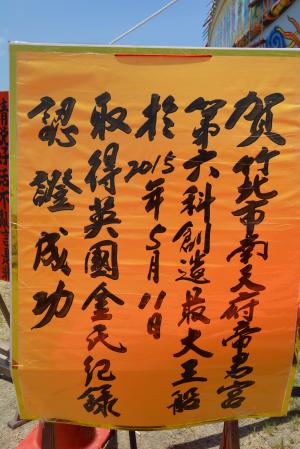 賀竹北市南天府帝君宮
第六科創造最大王船
於2015年5月11日
取得英國金氏紀錄
認證成功